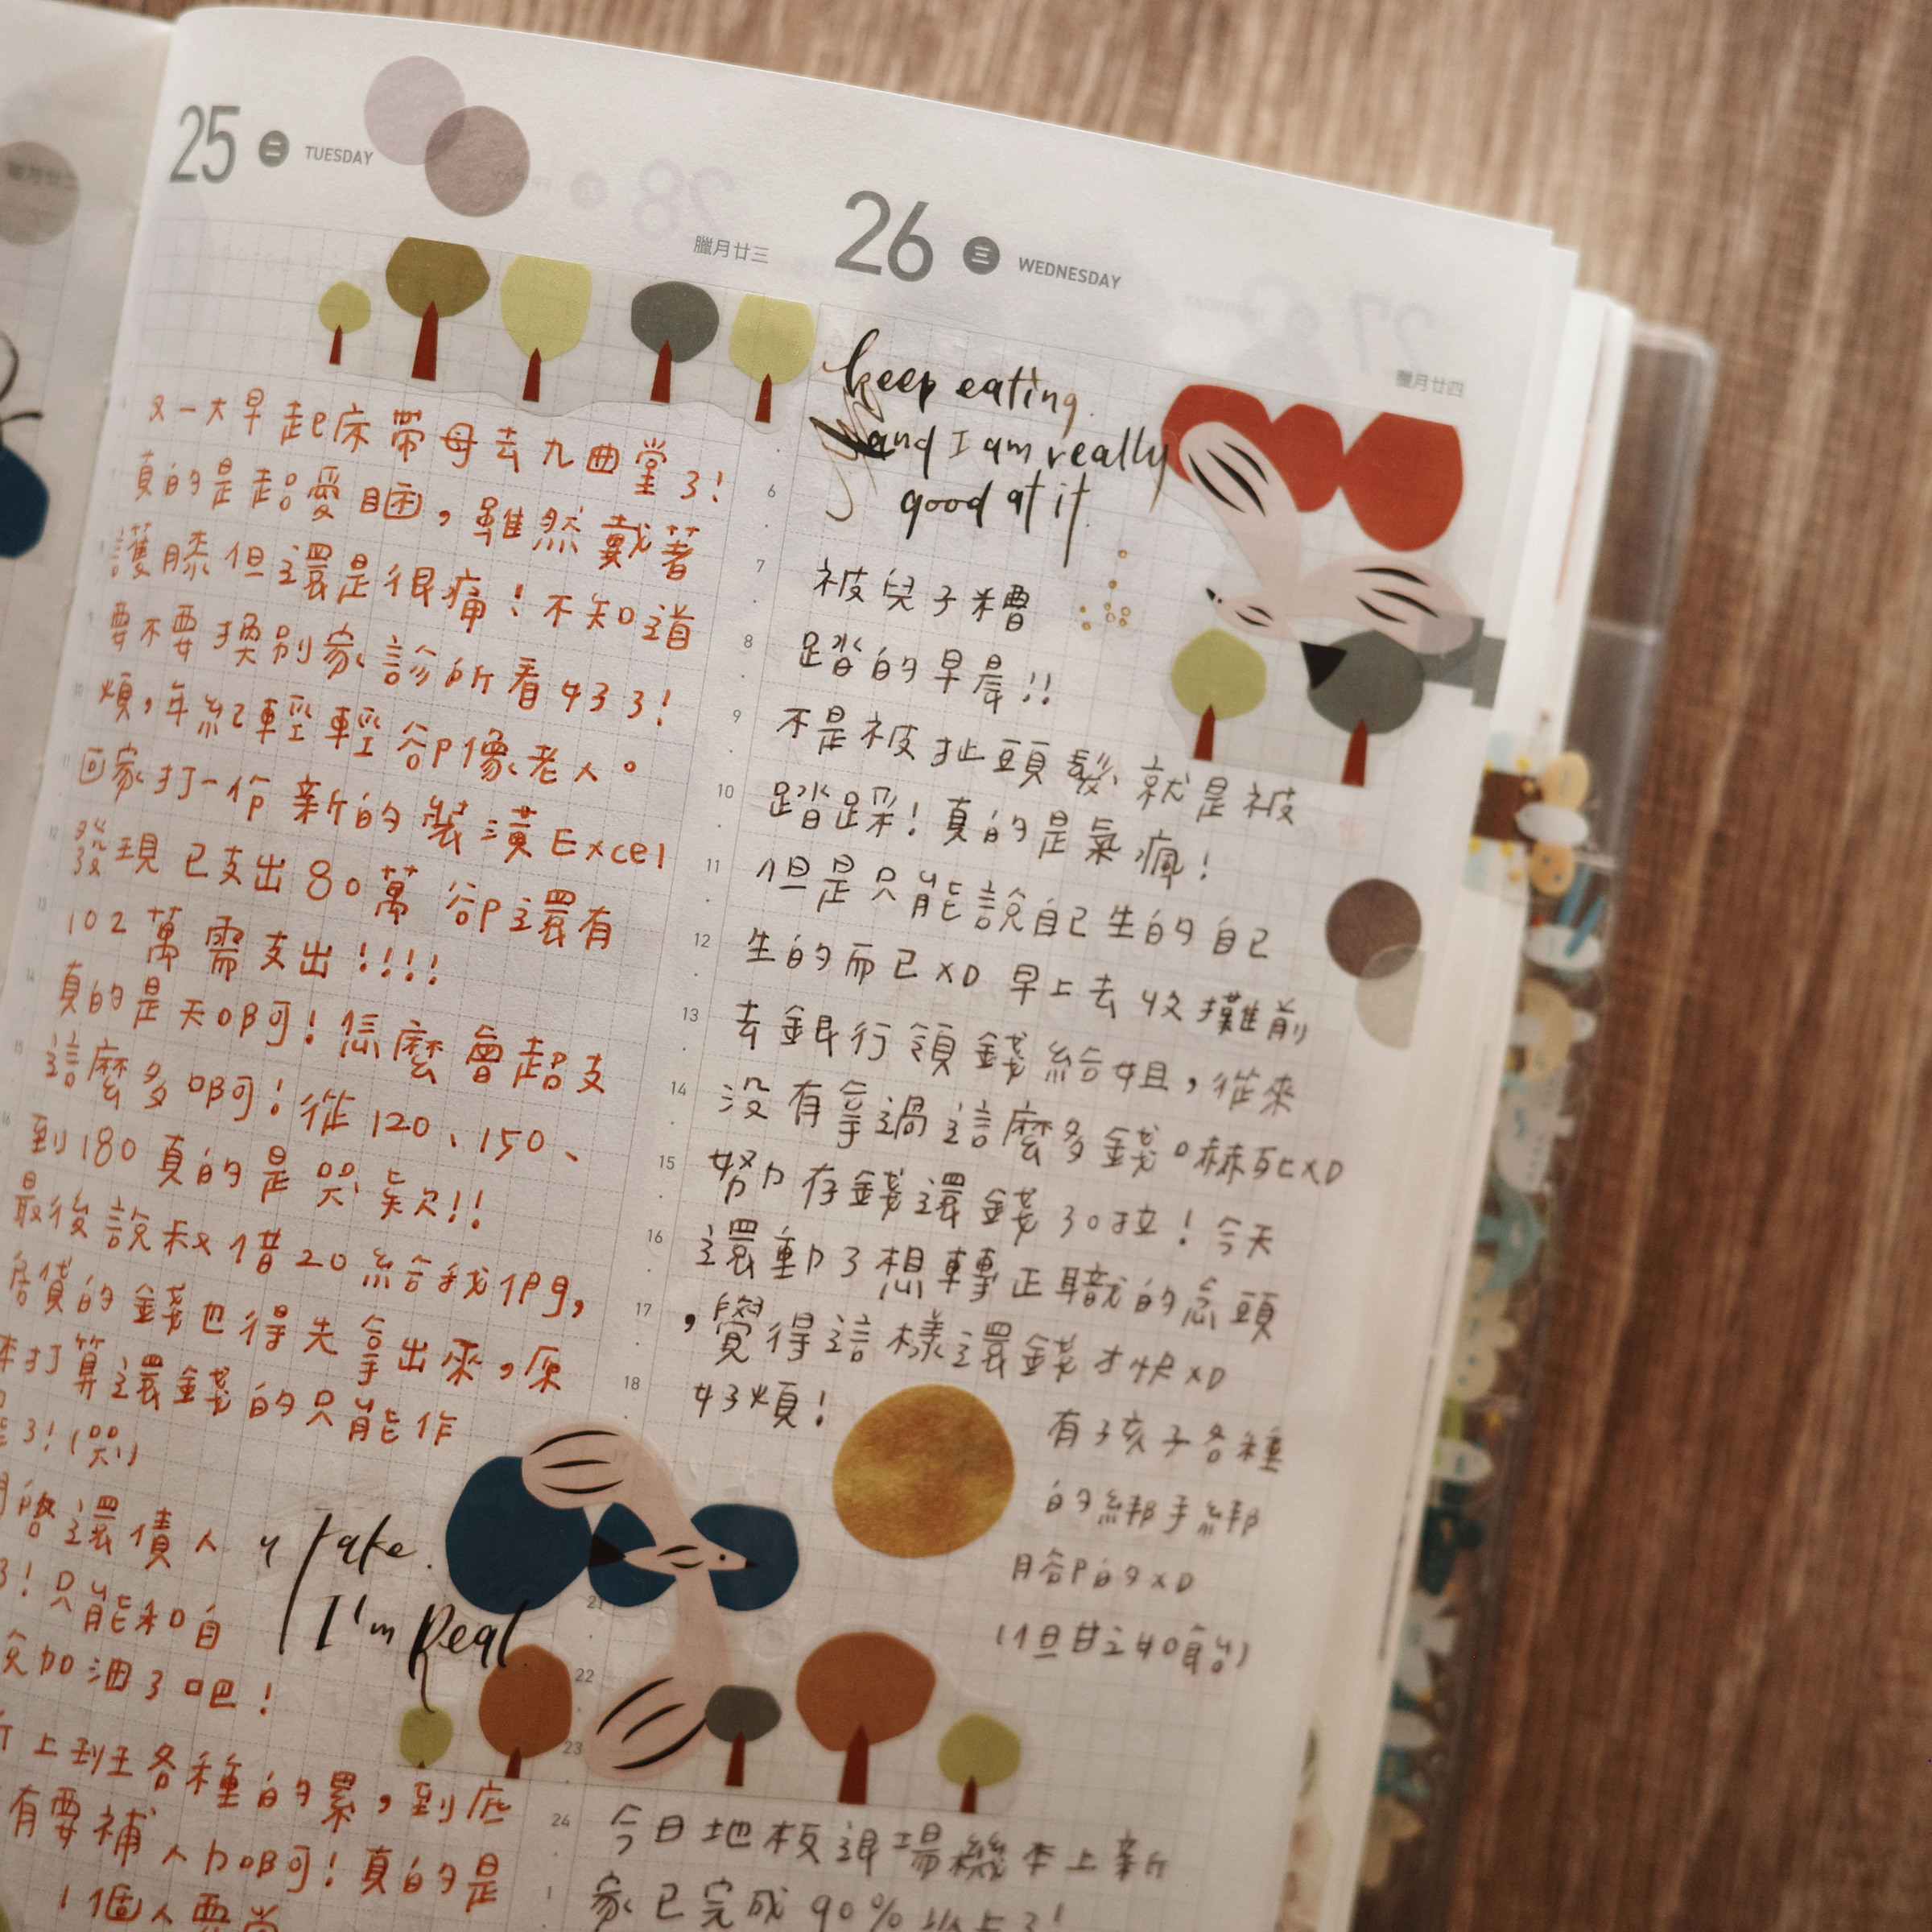 25 二 TUESDAY
臘月廿三
又一大早起床帶母去九曲堂了!
真的是超愛睏，雖然戴著
護膝但還是很痛!不知道
要不要換別家診所看好了!
煩，年紀輕輕卻像老人。
回家打一份新的裝潢Excel
發現已支出80萬卻還有
102萬需支出!!!!
真的是天啊!怎麼會超支
這麼多啊!從120、150、
到180真的是哭欸!!
最後說叔借20給我們，
貨的錢也得先拿出來，原
本打算還錢的只能作
了!(哭)
啓還債人
!只能和自
加油了吧!
上班各種的累，到底
有要補人力啊!真的是
1個人要當
Take.
I'm Real
26 三 WEDNESDAY
臘月廿四
keep eating.
and I am really
good at it.
6
7
8
9
10
11
12
13
14
15
16
17
18
21
22
23
24
1
被兒子糟
踏的早晨!!
不是被扯頭髮就是被
踏踩!真的是氣瘋!
但是只能說自己生的自己
生的而已XD 早上去收攤前
去銀行領錢給姐，從來
沒有拿過這麼多錢。嚇死XD
努力存錢還錢30拉!今天
還動了想轉正職的念頭
，覺得這樣還錢才快XD
好煩!
有孩子各種
的綁手綁
腳的XD
(但甘之如飴)
今日地板退場機本上新
家已完成90%以上了!